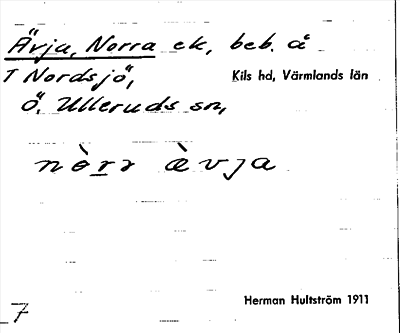 Ärja, Norra ek, beb. å
T Nordsjö,
Kils hd, Värmlands län
Ö. Ulleruds sn,
nòrr àvja
Herman Hultström 1911
7